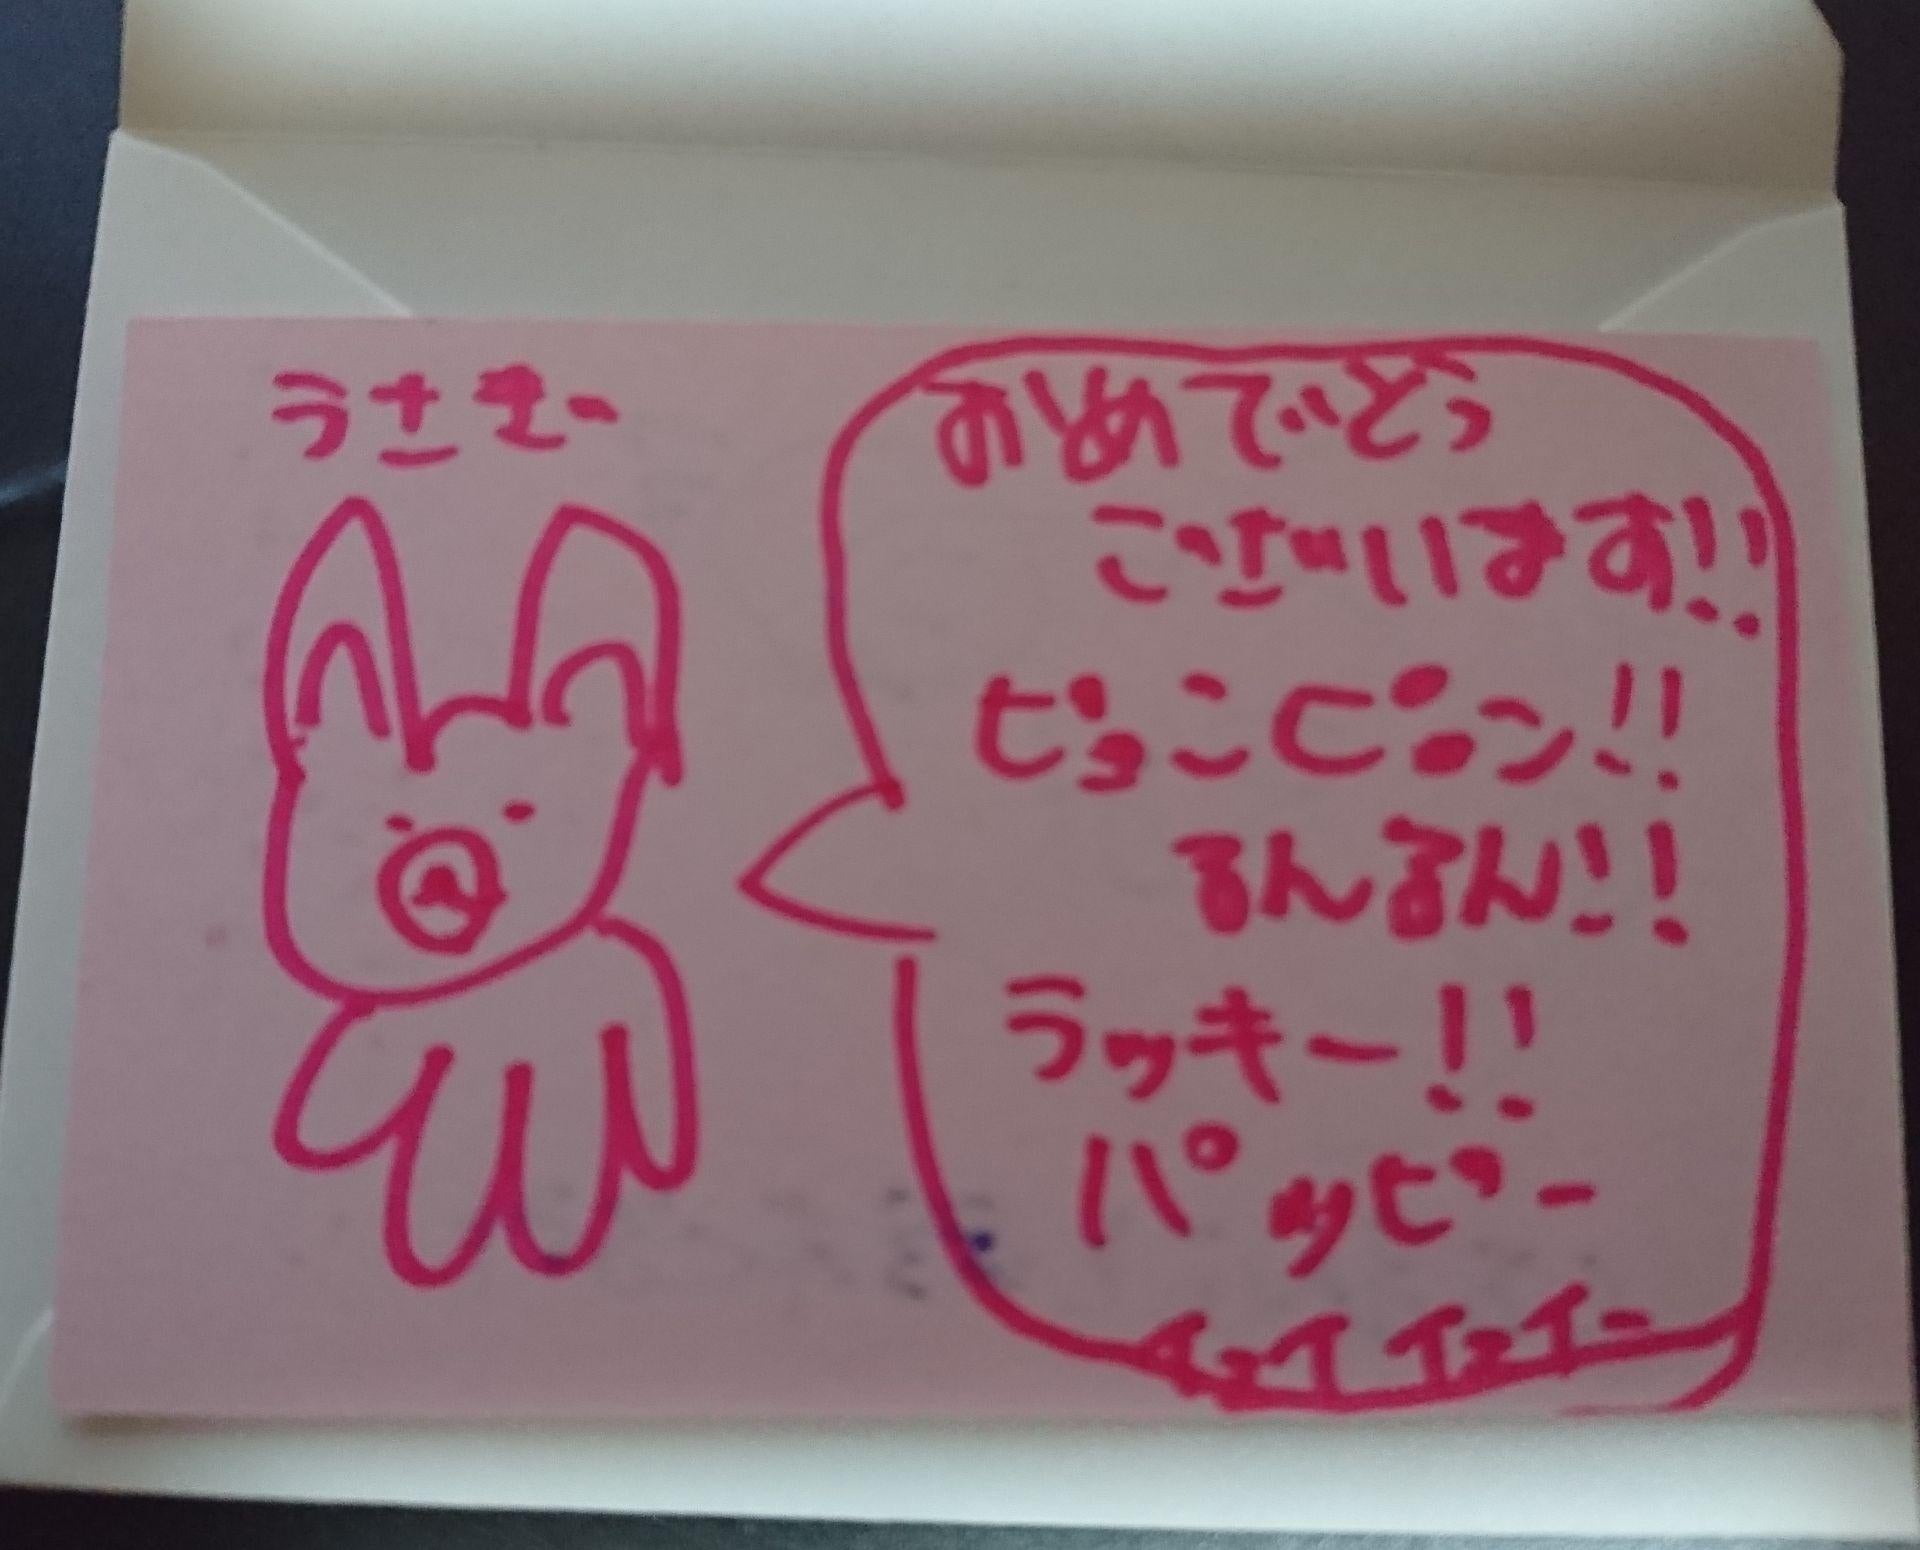 うさぎー
おめでとう
ございます!!
ピョこピョン!!
るんるん!!
ラッキー!!
パッピー
イェイイェイー